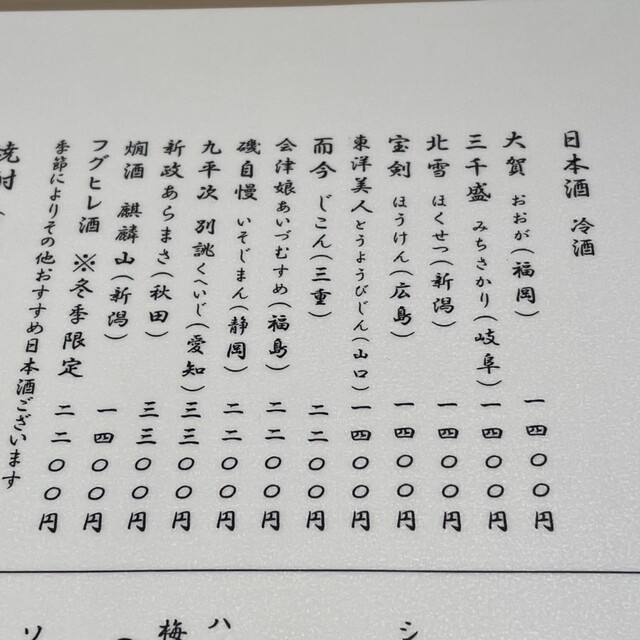 日本酒 冷酒
大賀 おおが(福岡) 一四〇〇円
三千盛 みちさかり(岐阜) 一四〇〇円
北雪 ほくせつ(新潟) 一四〇〇円
宝剣 ほうけん(広島) 一四〇〇円
東洋美人 とうようびじん(山口) 一四〇〇円
而今 じこん(三重) 二二〇〇円
会津娘 あいづむすめ(福島) 二二〇〇円
磯自慢 いそじまん(静岡) 二二〇〇円
九平次 別誂 くへいじ(愛知) 三三〇〇円
新政 あらまさ(秋田) 三三〇〇円
燗酒 麒麟山(新潟) 一四〇〇円
フグヒレ酒 ※冬季限定 二二〇〇円
季節によりその他おすすめ日本酒ございます
焼酎
シ
ハ
梅
ソ